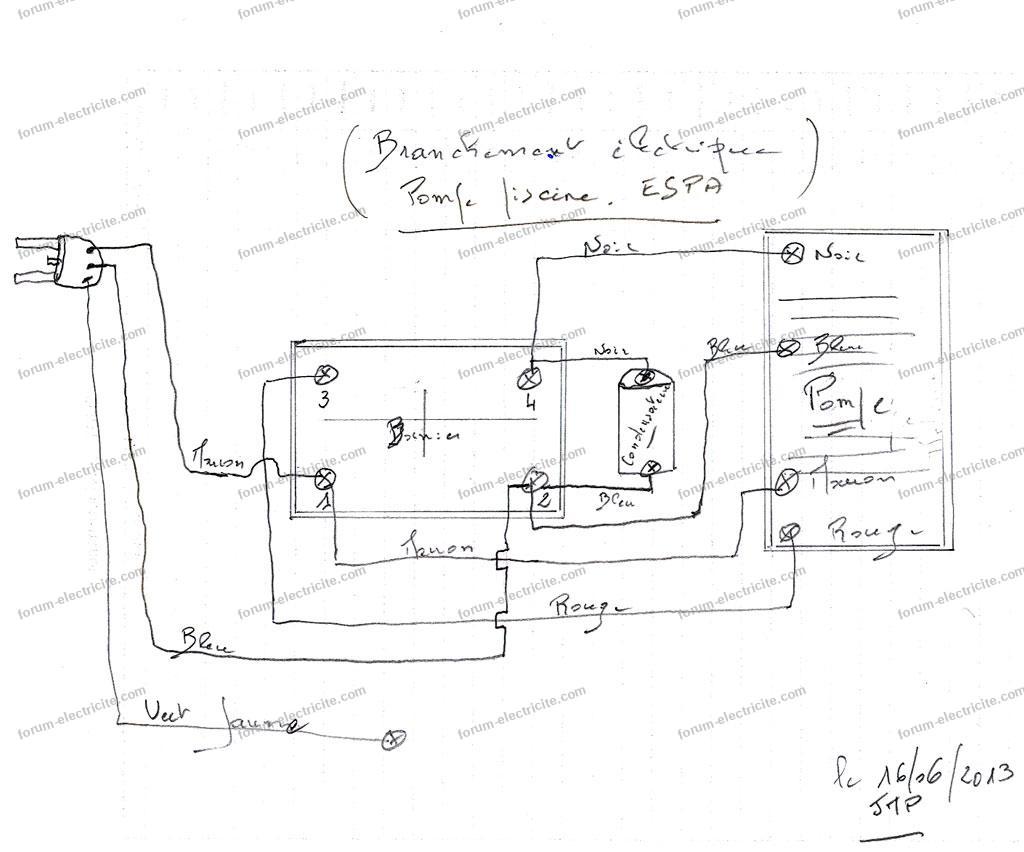 forum-electricite.com
(Branchement électrique
Pompe piscine. ESPA)
Noir
Noir
Noir
Bleu
Bleu
3
4
Condensateur
Pompe
Bornier
Marron
1
2
Bleu
Marron
Marron
Rouge
Rouge
Bleu
Vert Jaune
le 16/06/2013
JMP